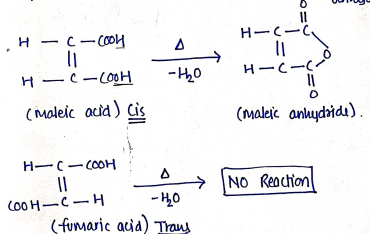 O
H — C — COOH
Δ
H — C — C
||
→
||
O
H — C — COOH
-H₂O
H — C — C
||
O
(maleic acid) Cis
(maleic anhydride).
H — C — COOH
Δ
||
→
NO Reaction
COOH — C — H
-H₂O
(fumaric acid) Trans